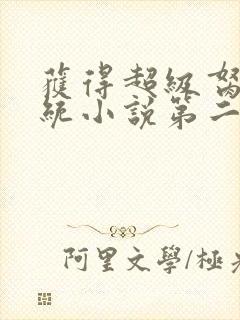 獲得超級
統小說第二
阿里文學/極